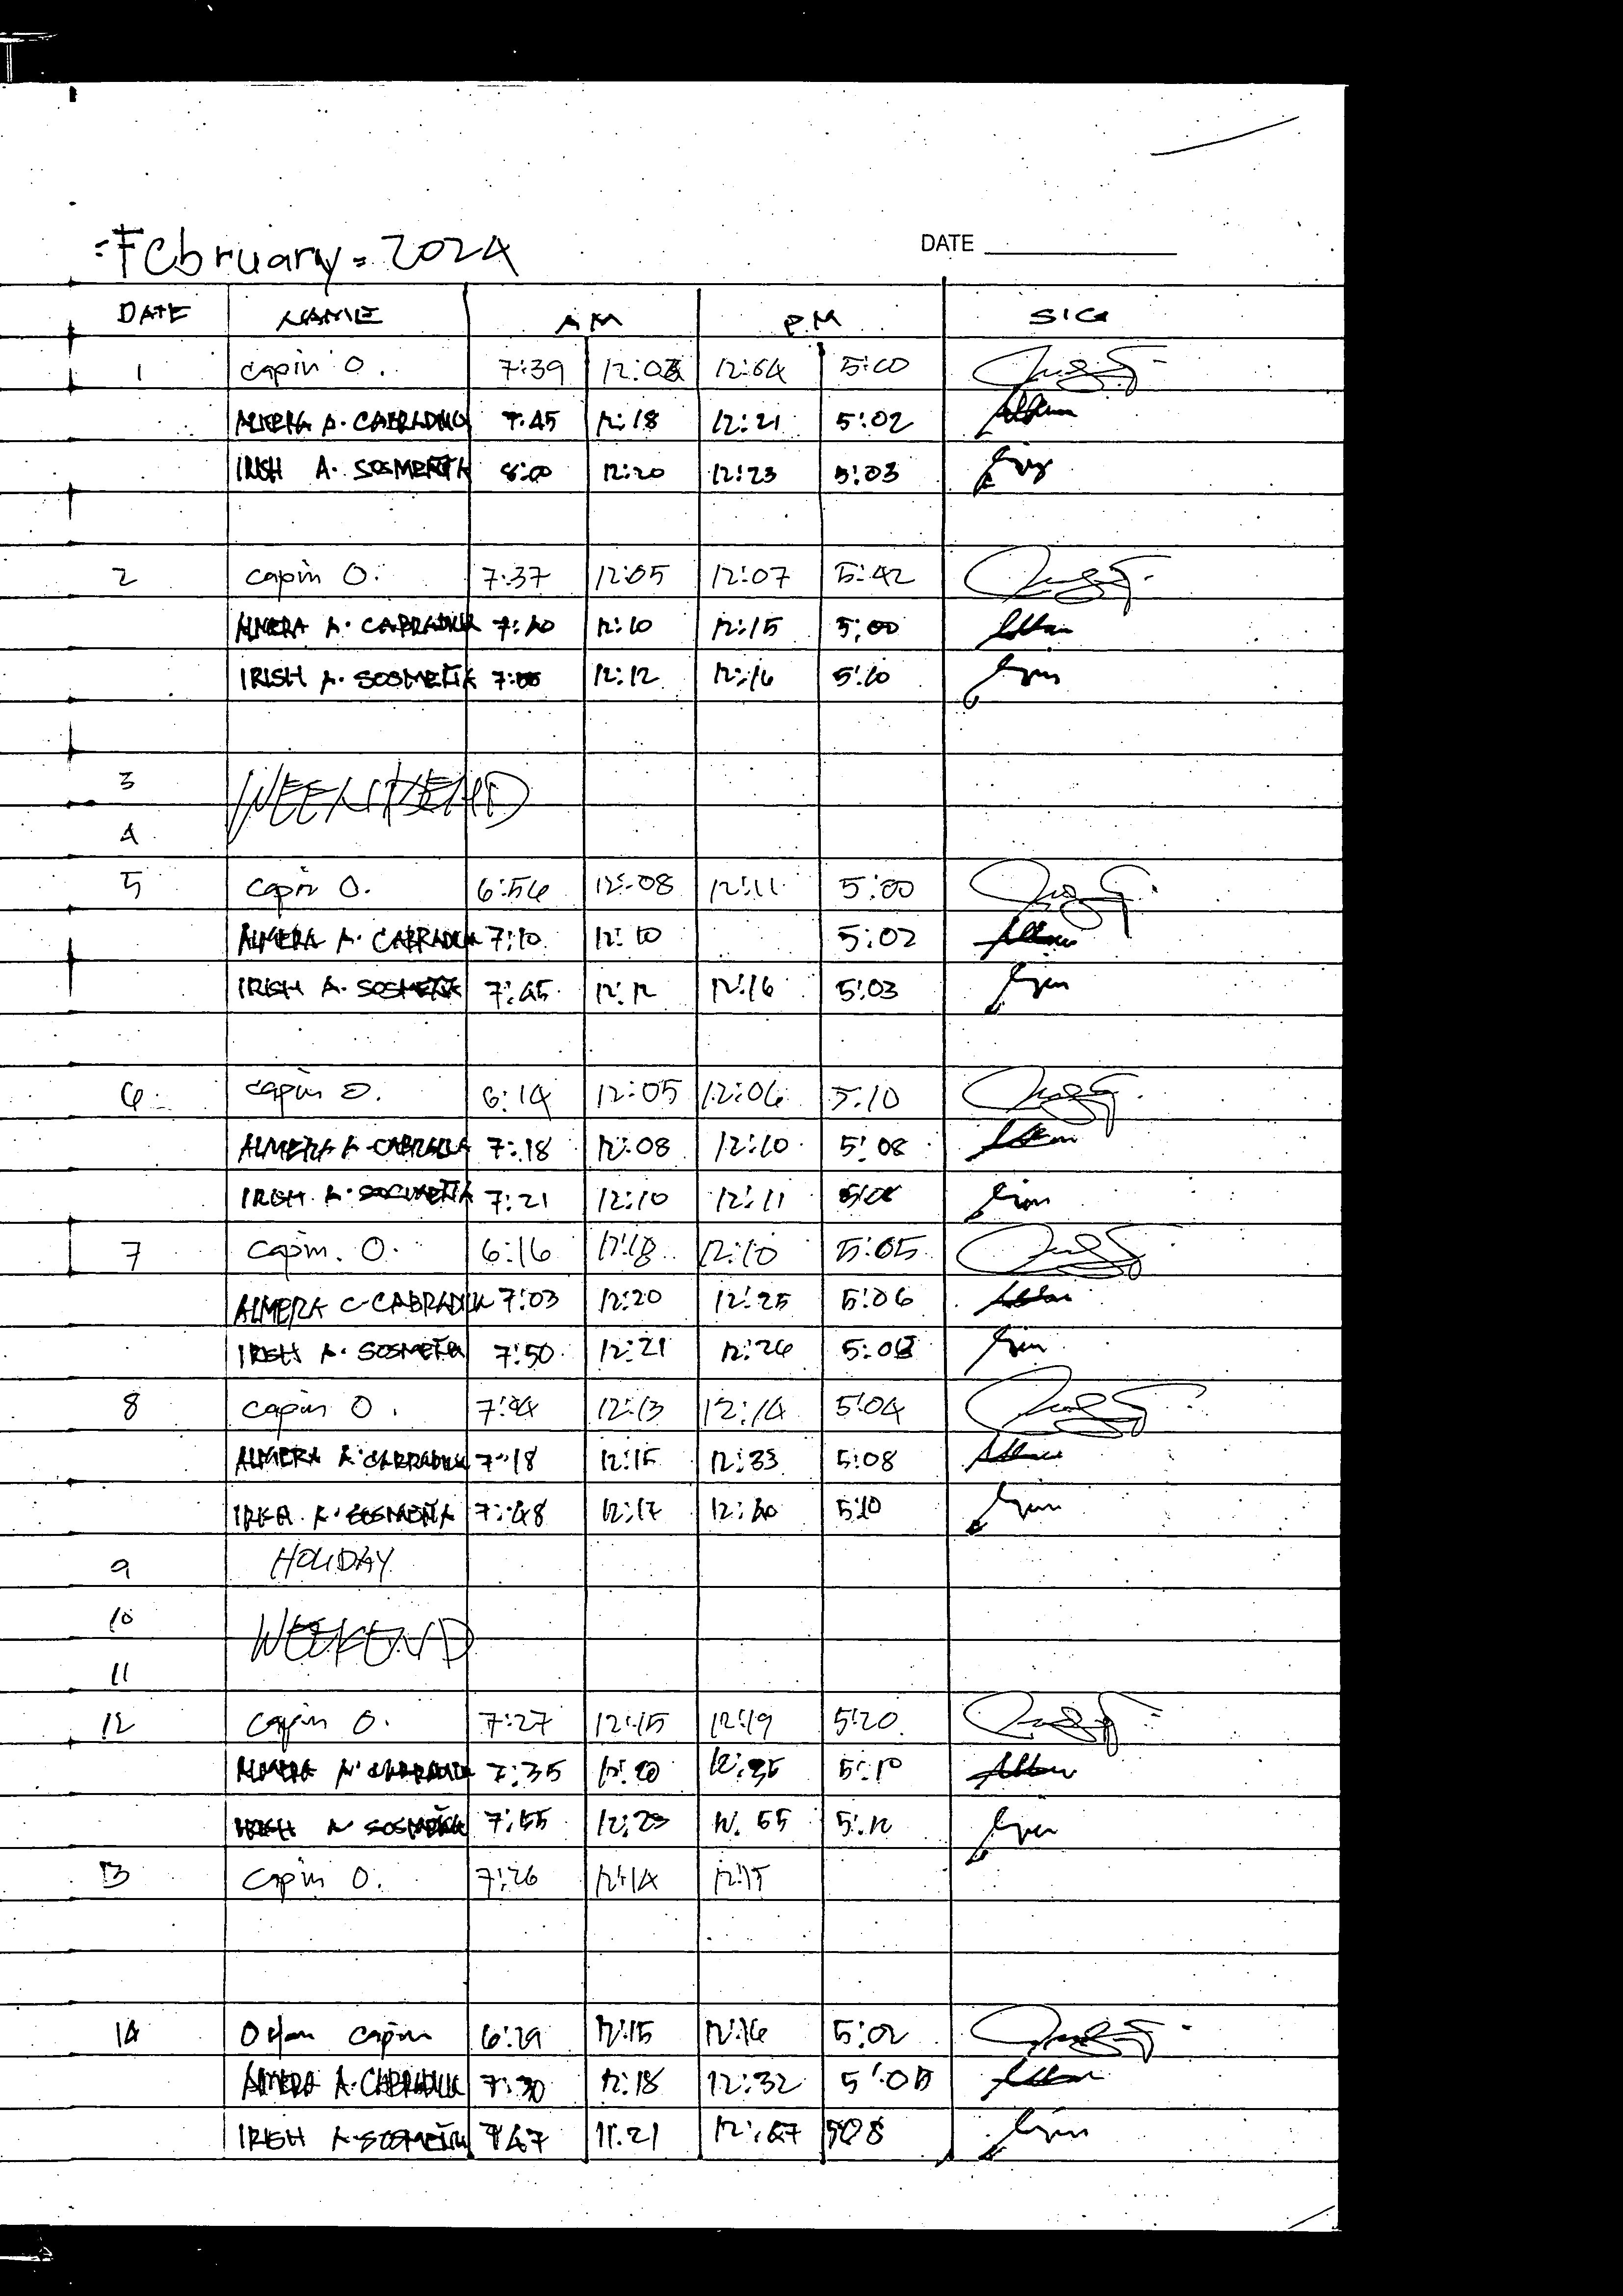 February 2024
DATE
DATE NAME AM PM SIG
1 Capin O. 7:39 12:03 12:04 5:00
ALMERA A. CABRADILLA 7:45 12:18 12:21 5:02
IRISH A. SOSMEÑA 8:00 12:20 12:23 5:03
2 Capin O. 7:37 12:05 12:07 5:42
ALMERA A. CABRADILLA 7:40 12:10 12:15 5:00
IRISH A. SOSMEÑA 12:12 12:16 5:10
3 WEEKEND
4
5 Capin O. 6:56 12:08 12:11 5:00
ALMERA A. CABRADILLA 7:10 12:10 5:02
IRISH A. SOSMEÑA 7:45 12:12 12:16 5:03
6 Capin O. 6:14 12:05 12:06 5:10
ALMERA A. CABRADILLA 7:18 12:08 12:10 5:08
IRISH A. SOSMEÑA 7:21 12:10 12:11
7 Capin. O. 6:16 12:18 12:10 5:05
ALMERA C. CABRADILLA 7:03 12:20 12:25 5:06
IRISH A. SOSMEÑA 7:50 12:21 12:26
8 Capin O. 7:44 12:13 12:14 5:04
ALMERA A. CABRADILLA 7:18 12:15 12:33 5:08
IRISH A. SOSMEÑA 7:48 12:17 12:40 5:10
9 HOLIDAY
10 WEEKEND
11
12 Capin O. 7:27 12:15 12:19 5:20
ALMERA A. CABRADILLA 7:35 12:20 12:35 5:10
IRISH A. SOSMEÑA 7:55 12:23 12:55 5:12
13 Capin O. 7:26 12:14 12:15
14 Capin 6:29 12:15 12:16 5:02
ALMERA A. CABRADILLA 7:30 12:18 12:32 5:05
IRISH A. SOSMEÑA 7:47 11:21 12:47 508